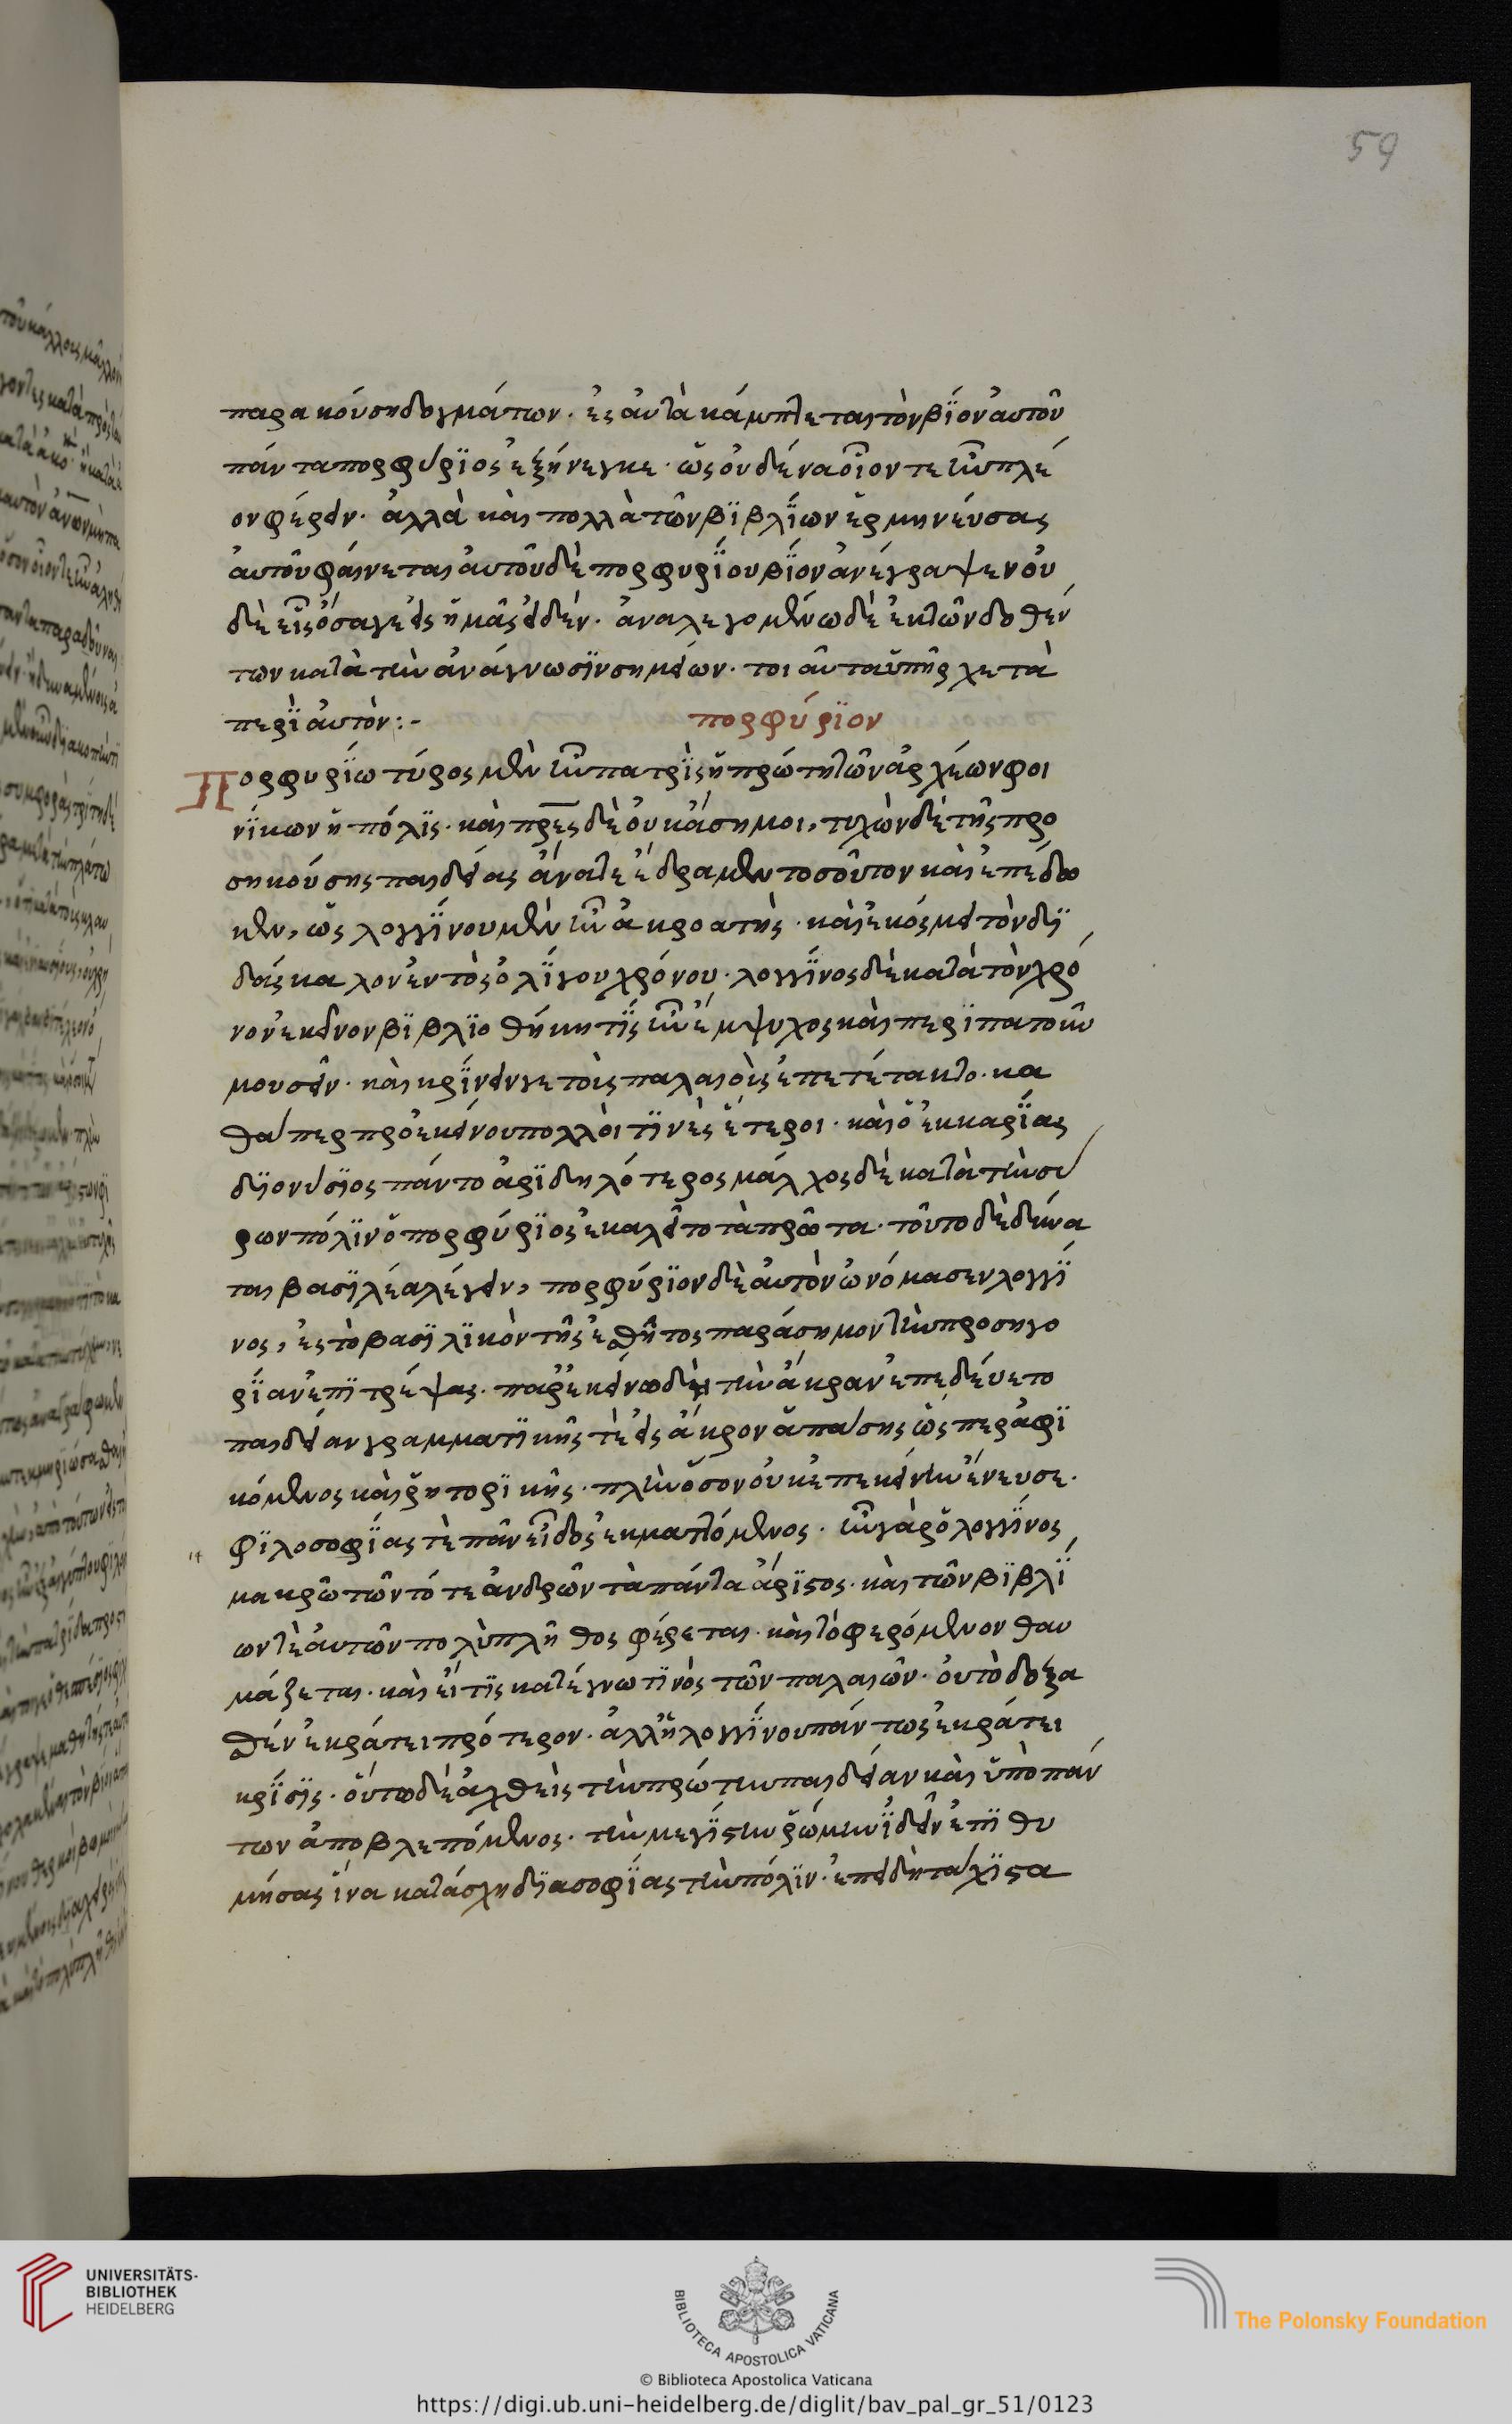 59
παρακούσῃ δογμάτων. ἐς αὐτὰ κάμπτεται τὸν βίον αὐτοῦ
πάντα πορφύριος ἐξήνεγκε. ὡς οὐδένα οἷόν τε ἦν πλέ
ον φέρειν. ἀλλὰ καὶ πολλὰ τῶν βιβλίων ἑρμηνεύσας
αὐτοῦ φαίνεται αὐτοῦ δὲ πορφυρίου βίον ἀνέγραψεν οὐ
δὲ εἷς ὅσα γε εἰς ἡμᾶς εἰδέν. ἀναλεγομένω δὲ ἐκ τῶν δοθέν
των κατὰ τὴν ἀνάγνωσιν σημείων. τοιαῦτα ὑπῆρχε τὰ
περὶ αὐτόν:-
πορφύριον
Πορφυρίω τύρος μὲν ἦν πατρὶς ἡ πρώτη τῶν ἀρχέων φοι
νίκων ἡ πόλις. καὶ πρες δὲ οὐκ ἄσημοι, τυχὼν δὲ τῆς προ
σηκούσης παιδείας ἀνά τε ἔδραμεν τοσοῦτον καὶ ἐπέδω
κεν, ὡς λογγίνου μὲν ἦν ἀκροατὴς. καὶ ἐκόσμει τὸν δι
δάσκαλον ἐντὸς ὀλίγου χρόνου. λογγῖνος δὲ κατὰ τὸν χρό
νον ἐκεῖνον βιβλιοθήκη τὶς ἦν ἔμψυχος καὶ περιπατοῦν
μουσεῖν. καὶ κρίνειν γε τοὶς παλαιοὶς ἐπετέτακτο. κα
θάπερ πρὸ ἐκείνου πολλοὶ τινὲς ἕτεροι. καὶ ὁ ἐκ καρίας
διονύσιος πάντο ἀριδηλότερος μάλχος δὲ κατὰ τὴν σύ
ρων πόλιν ὁ πορφύριος ἐκαλεῖτο τὰ πρῶτα. τοῦτο δὲ δύνα
ται βασιλέα λέγειν, πορφύριον δὲ αὐτὸν ὠνόμασεν λογγῖ
νος, ἐς τὸ βασιλικὸν τῆς ἐσθῆτος παράσημον τὴν προσηγο
ρίαν ἐπιτρέψας. παρ' ἐκείνω δὴ τὴν ἄκραν ἐπεδεύετο
παιδείαν γραμματικῆς τὲ εἰς ἄκρον ἁπάσης ὥσπερ ἀφι
κόμενος καὶ ῥητορικῆς. πλὴν ὅσον οὐκ ἐπ' ἐκείνην ἔνευσε.
φιλοσοφίας τὲ πᾶν εἶδος ἐκματτόμενος. ἦν γὰρ ὁ λογγῖνος
μακρῶ τῶν τότε ἀνδρῶν τὰ πάντα ἄριστος. καὶ τῶν βιβλί
ων τὲ αὐτῶν πολὺ πλῆθος φέρεται. καὶ τὸ φερόμενον θαυ
μάζεται. καὶ εἴ τις κατέγνω τινὸς τῶν παλαιῶν. οὐ τὸ δοξα
σθὲν ἐκράτει πρότερον. ἀλλ' ἡ λογγίνου πάντως ἐκράτει
κρίσις. οὕτω δὲ ἀχθεὶς τὴν πρώτην παιδείαν καὶ ὑπὸ πάν
των ἀποβλεπόμενος. τὴν μεγίστην ῥώμην ἰδεῖν ἐπιθυ
μήσας ἵνα κατάσχῃ διὰ σοφίας τὴν πόλιν. ἐπειδὴ τάχιστα
UNIVERSITÄTS-
BIBLIOTHEK
HEIDELBERG
BIBLIOTECA APOSTOLICA VATICANA
The Polonsky Foundation
© Biblioteca Apostolica Vaticana
https://digi.ub.uni-heidelberg.de/diglit/bav_pal_gr_51/0123